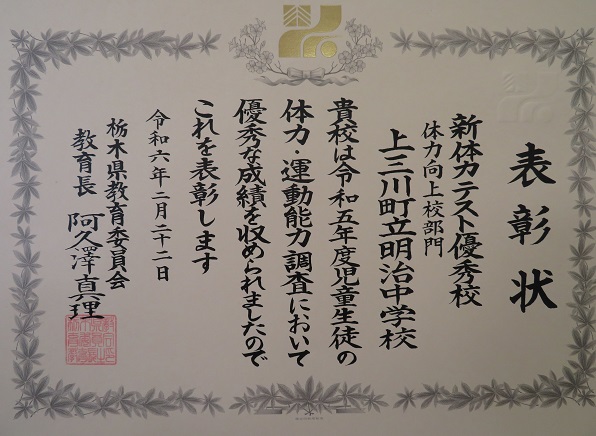 表彰状
新体力テスト優秀校
体力向上校部門
上三川町立明治中学校
貴校は令和五年度児童生徒の
体力・運動能力調査において
優秀な成績を収められましたので
これを表彰します
令和六年二月二十二日
栃木県教育委員会
教育長 阿久澤真理